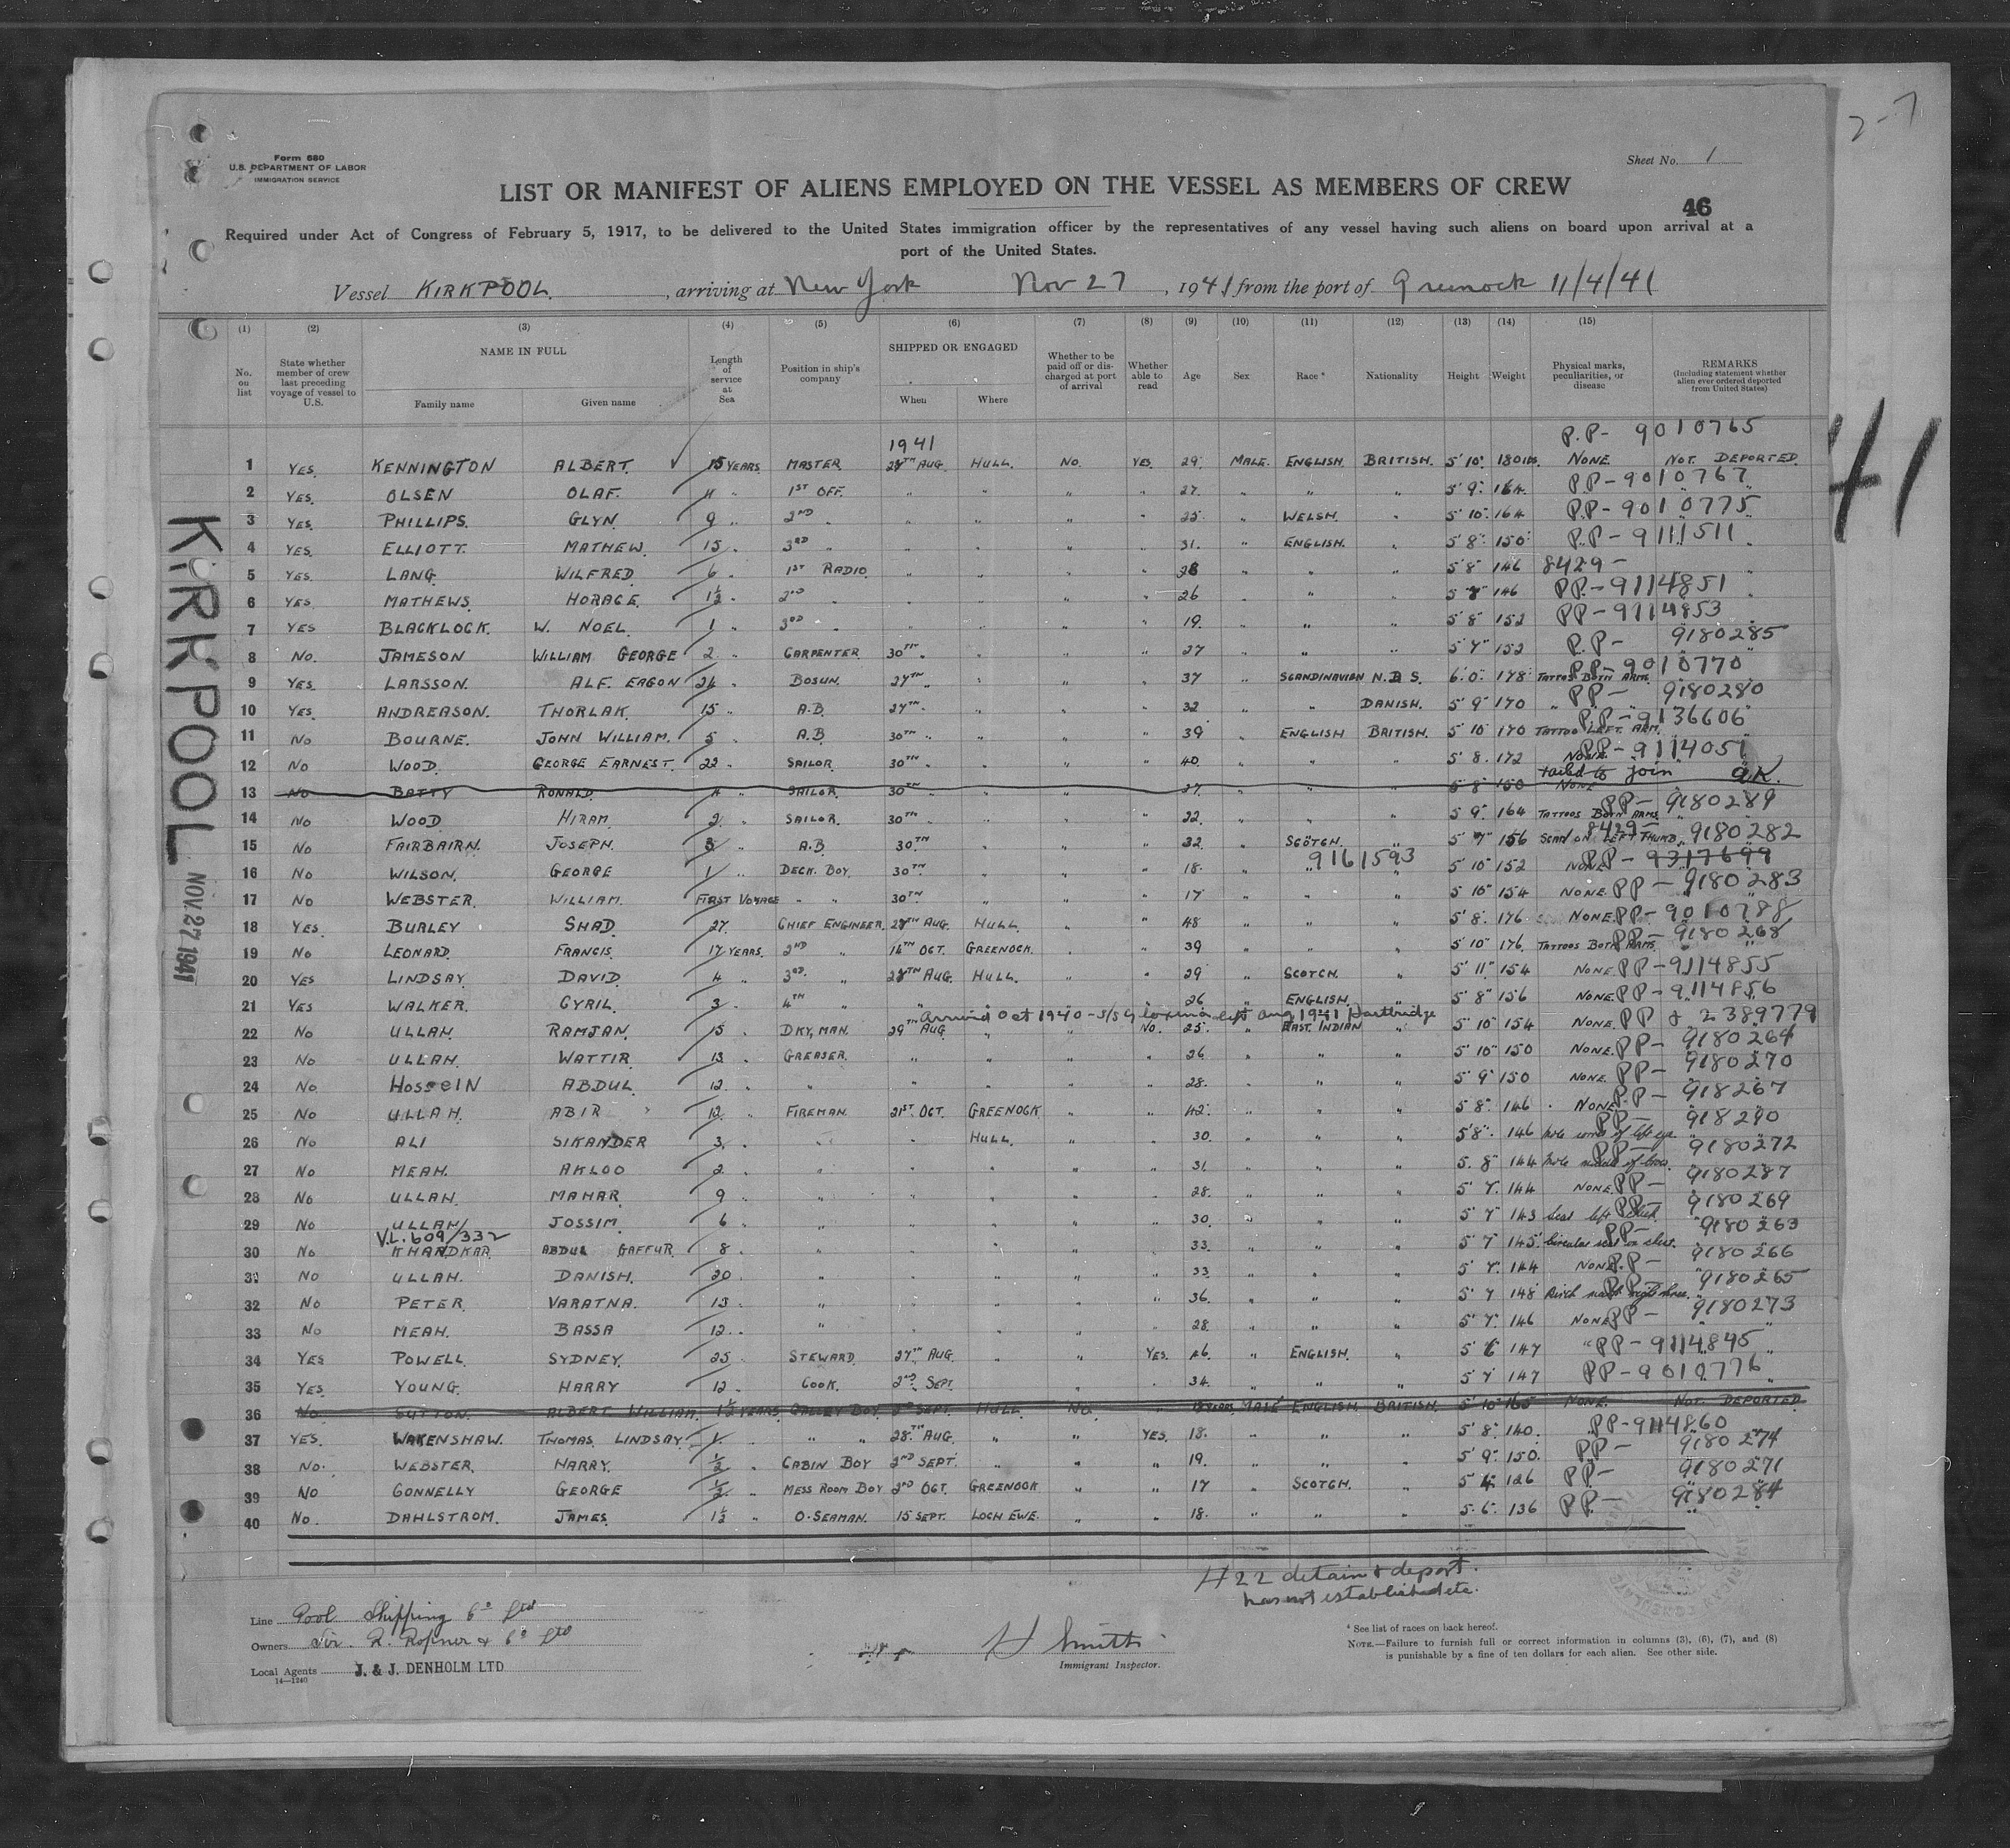 2-7
Form 680
U.S. DEPARTMENT OF LABOR
IMMIGRATION SERVICE
Sheet No. 1
LIST OR MANIFEST OF ALIENS EMPLOYED ON THE VESSEL AS MEMBERS OF CREW
46
Required under Act of Congress of February 5, 1917, to be delivered to the United States immigration officer by the representatives of any vessel having such aliens on board upon arrival at a
port of the United States.
Vessel KIRKPOOL. , arriving at New York Nov 27 , 1941 from the port of Greenock 11/4/41
(1) (2) (3) (4) (5) (6) (7) (8) (9) (10) (11) (12) (13) (14) (15)
No. on list State whether member of crew last preceding voyage of vessel to U.S. NAME IN FULL Family name Given name Length of service at Sea Position in ship's company SHIPPED OR ENGAGED When Where Whether to be paid off or discharged at port of arrival Whether able to read Age Sex Race * Nationality Height Weight Physical marks, peculiarities, or disease REMARKS (Including statement whether alien ever ordered deported from United States)
1941 P.P- 9010765
1 YES. KENNINGTON ALBERT. 15 YEARS MASTER. 28TH AUG. HULL. NO. YES. 29. MALE. ENGLISH. BRITISH. 5' 10". 180 lbs. NONE. NOT DEPORTED.
2 YES. OLSEN OLAF. 11 " 1ST OFF. " " " " 27. " " " 5' 9". 164. PP-9010767
3 YES. PHILLIPS. GLYN. 9 " 2ND " " " " " 25. " WELSH. " 5' 10". 164 PP-9010775
4 YES. ELLIOTT. MATHEW. 15 " 3RD " " " " " 31. " ENGLISH. " 5' 8". 150. PP-9111511
5 YES. LANG. WILFRED. 6 " 1ST RADIO " " " " 28 " " " 5' 8" 146 8429-
6 YES. MATHEWS. HORACE. 1½ " 2ND " " " " " 26 " " " 5' 7" 146 PP.-9114851
7 YES BLACKLOCK. W. NOEL. 1 " 3RD " " " " " 19. " " " 5' 8" 152 PP-9114853
8 NO. JAMESON WILLIAM GEORGE 2 " CARPENTER 30TH " " " " 27 " " " 5' 7" 152 P.P- 9180285
9 YES. LARSSON. ALF. EAGON 24 " BOSUN. 27TH " " " " 37 " SCANDINAVIAN 6'. 0". 178 TATTOS BOTH ARMS. PP-9010770
10 YES. ANDREASON. THORLAK. 15 " A.B. 27TH " " " " 32 " " DANISH. 5' 9" 170 " " " PP- 9180280
11 NO BOURNE. JOHN WILLIAM. 5 " A.B 30TH " " " " 39 " ENGLISH BRITISH. 5' 10" 170 TATTOO LEFT ARM. P.P-9136606
12 NO WOOD. GEORGE EARNEST. 22 " SAILOR. 30TH " " " " 40 " " " 5' 8. 172 NONE. PP-9114051
failed to join
13 NO BATTY RONALD. " SAILOR. 30TH " 27. " " " 5' 8" 150 NONE
14 NO WOOD HIRAM. 2 " SAILOR. 30TH " " " " 22. " " " 5' 9". 164 TATTOOS BOTH ARMS. PP- 9180289
15 NO FAIRBAIRN. JOSEPH. 3 " A.B 30TH " " " 22. " SCOTCH. " 5' 7" 156 SCAR ON LEFT THUMB. 8429- 9180282
16 NO WILSON. GEORGE 1 " DECK. BOY. 30TH " " " 18. " " 9161593 " 5' 10" 152 NONE. PP- 9317699
17 NO WEBSTER. WILLIAM. FIRST VOYAGE " " 30TH " " " 17 " " " 5' 10" 154 NONE. PP- 9180283
18 YES. BURLEY SHAD. 27. CHIEF ENGINEER. 28TH AUG. HULL. " " 48 " " " 5' 8. 176. NONE. PP-9010788
19 NO LEONARD. FRANCIS. 17 YEARS. 2ND " 14TH OCT. GREENOCK. " " 39 " " " 5' 10" 176. TATTOOS BOTH ARMS. PP- 9180268
20 YES LINDSAY. DAVID. 4 " 3RD. " 28TH AUG. HULL. " " 29 " SCOTCH. " 5' 11" 154 NONE. PP-9114855
21 YES WALKER. CYRIL. 3 " 4TH " " " " " 26 " ENGLISH. " 5' 8" 156 NONE. PP-9114856
Arrived Oct 1940 - S/S left Aug 1941 Hartbridge
22 NO ULLAH. RAMJAN. 15 " DKY. MAN. 29TH AUG " " NO. 25. " EAST. INDIAN " 5' 10" 154 NONE. PP & 2389779
23 NO ULLAH. WATTIR. 13 " GREASER. " " " " 26 " " " 5' 10" 150 NONE. PP- 9180264
24 NO. HOSSEIN ABDUL. 12. " " " " " " 28. " " " 5' 9" 150 NONE. PP- 9180270
25 NO ULLAH. ABIR 12. " FIREMAN. 21ST OCT. GREENOCK " " 42. " " " 5 8" 146 NONE. PP- 918267
26 NO ALI SIKANDER 3. " " " HULL. " " 30. " " " 5' 8". 146 PP- 918290
27 NO MEAH. AKLOO 2. " " " " " " 31. " " " 5. 8" 144 PP- 9180272
28 NO ULLAH. MAHAR 9 " " " " " " 28. " " " 5' 7. 144 NONE. PP- 9180287
29 NO ULLAH JOSSIM. 6 " " " " " " 30. " " " 5' 7" 143 Scar left cheek. PP- 9180269
V.L. 609/332
30 NO KHANDKAR. ABDUL GAFFUR. 8 " " " " " " 33. " " " 5' 7 145 Circular scar on chest. PP- 9180263
31 NO ULLAH. DANISH. 20 " " " " " " 33 " " " 5' 7. 144 NONE. P.P- 9180266
32 NO PETER. VARATNA. 13 " " " " " " 36. " " " 5' 7 148 PP- 9180265
33 NO MEAH. BASSA 12. " " " " " " 28. " " " 5' 7". 146 NONE. PP- 9180273
34 YES POWELL. SYDNEY. 25 " STEWARD. 27TH AUG. " " YES. 46. " ENGLISH. " 5' 6" 147 " PP-9114845
35 YES YOUNG. HARRY 12 " COOK. 2ND SEPT. " " 34. " " " 5' 7 147 PP-9010776
36 NO SUTTON. ALBERT WILLIAM. 1½ YEARS. GALLEY BOY. 2ND SEPT. HULL NO. " 18 YEARS. MALE ENGLISH. BRITISH. 5' 10" 165 NONE. NOT DEPORTED.
37 YES. WAKENSHAW. THOMAS LINDSAY. 1. " " 28TH AUG. " " YES. 18. " " " 5' 8". 140. PP-9114860
38 NO. WEBSTER. HARRY. ½ " CABIN BOY 2ND SEPT. " " " 19. " " " 5' 9". 150. PP- 9180274
39 NO CONNELLY GEORGE ½ " MESS ROOM BOY 2ND OCT. GREENOCK " " 17 " SCOTCH. " 5' 4" 126 PP- 9180271
40 NO. DAHLSTROM. JAMES. 1½ " O. SEAMAN. 15 SEPT. LOCH EWE. " " 18. " " " 5. 6". 136 PP- 9180284
KIRKPOOL NOV. 27 1941
41
#22 detain & deport.
has not established etc.
Line Pool Shipping Co Ltd
Owners Sir. R. Ropner & Co Ltd
Local Agents J. & J. DENHOLM LTD
14-1240
H Smith
Immigrant Inspector.
* See list of races on back hereof.
NOTE.—Failure to furnish full or correct information in columns (3), (6), (7), and (8)
is punishable by a fine of ten dollars for each alien. See other side.